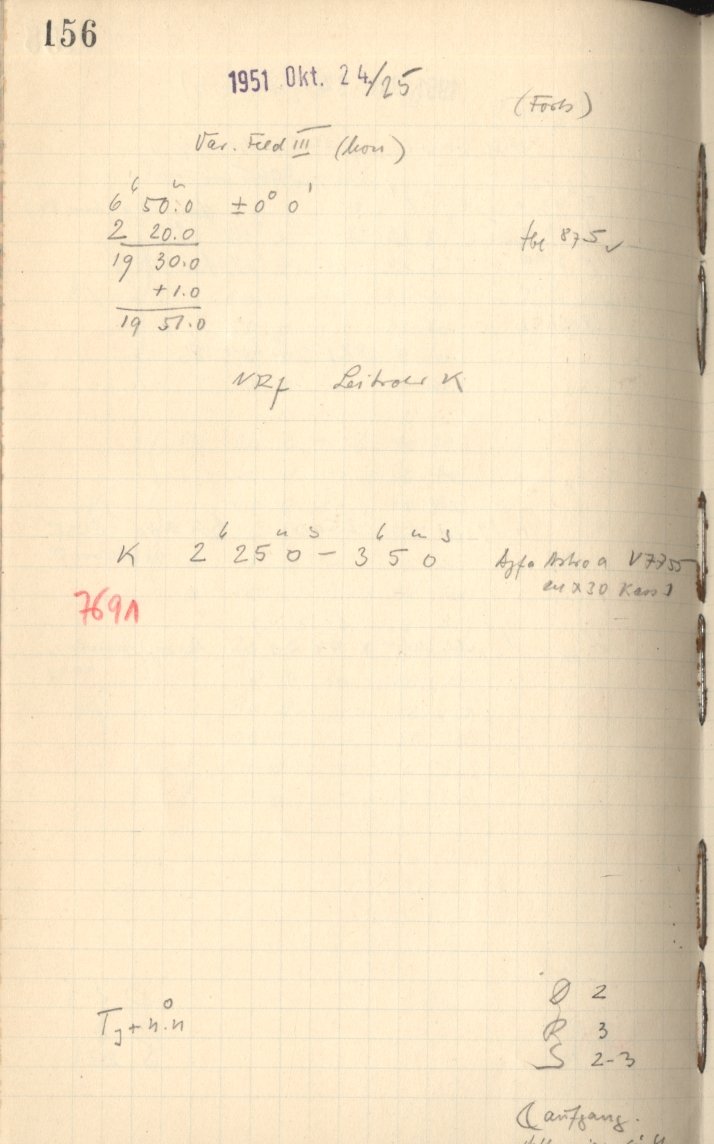 156
1951 Okt. 24/25
(Forts)
Var. Feld III (Mon)
6ʰ 50ᵐ.0 ±0° 0'
2 20.0
19 30.0
+1.0
19 51.0
875 ✓
Leitrohr K
K 2ʰ 25ᵐ 0ˢ – 3ʰ 5ᵐ 0ˢ Agfa Astro V7755
9x30 Kass 1
7691
2
R 3
S 2-3
☾ aufgang.